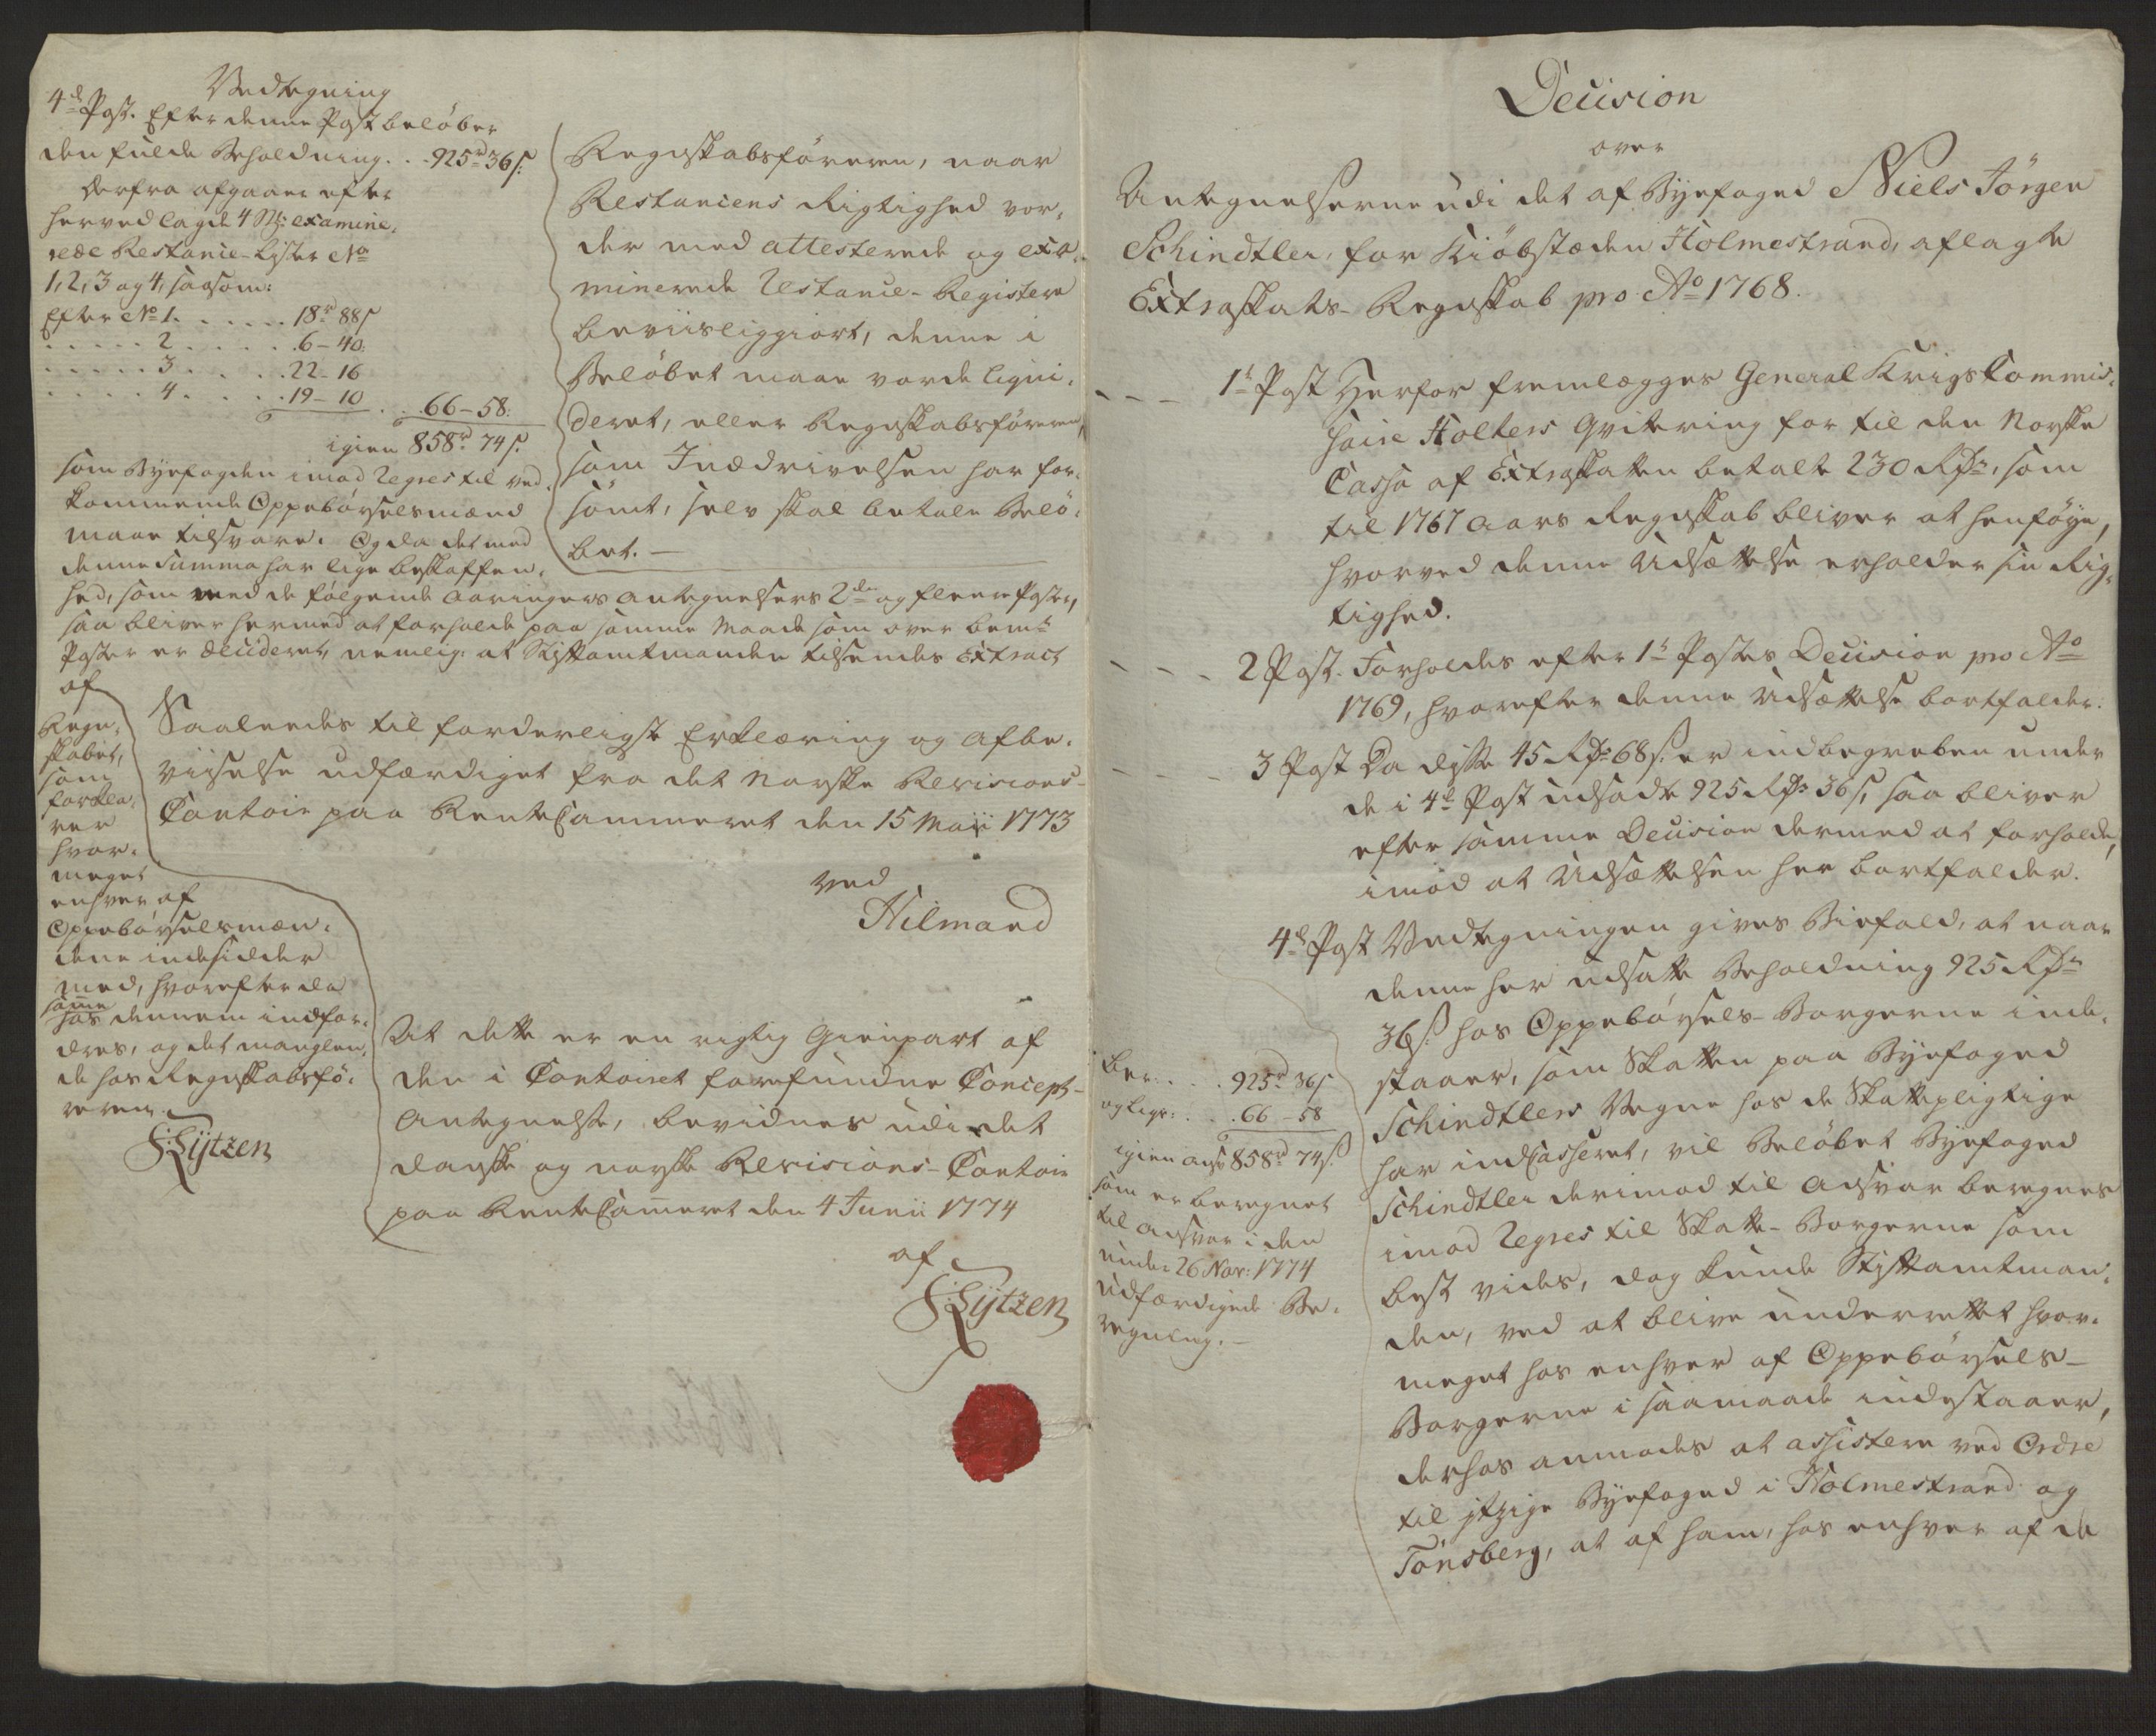 Vedtegning
4de Post. Efter denne Post beløber
den fulde Beholdning. . . 925rd 36 s:
Derfra afgaaer efter
herved lagde 4 St: examine-
rede Restance-Lister No
1, 2, 3 og 4, saasom:
Efter No 1. . . . . . 18rd 88 s
. . . . . 2 . . . . . 6 - 40.
. . . . . 3 . . . . . 22 - 16
. . . . . 4 . . . . . 19 - 10 . . 66 - 58.
igien 858rd 74 s.
som Byefogden imod Regres til ved-
kommende Oppebørselsmænd
maae tilsvare. Og da det med
denne Summa har lige beskaffen-
hed, som med de følgende Aaringers Antegnelsers 2den og fleere Poster,
saa bliver hermed at forholde paa samme Maade som over bemte
Poster er decideret, nemlig: at Stiftamtmanden tilsendes Extract
af
Regn-
skabet,
som
forkla-
rer
hvor-
meget
enhver af
Oppebørselsmæn-
dene indesidder
med, hvorefter da
samme
hos dennem indfor-
dres, og det manglen-
de hos Regnskabsfø-
reren.
Lÿtzen
Regnskabsføreren, naar
Restancens Rigtighed vor-
der med attesterede og exa-
minerede Restance-Registere
beviisliggiort, denne i
Beløbet maae vorde liqvi-
deret, eller Regnskabsføreren,
som Inddrivelsen har for-
sømt, selv skal betale Belø-
bet. —
Saaledes til forderligst Erklæring og Afbe-
viiselse udfærdiget fra det Norske Revisions-
Contoir paa RenteCammeret den 15 Maii 1773
Ved
Hilmand
At dette er en rigtig Gienpart af
den i Contoiret forefundne Concept-
Antegnelse, bevidnes udi det
danske og norske Revisions-Contoir
paa RenteCammeret den 4 Junii 1774
af
Lÿtzen
Decision
over
Antegnelserne udi det af Byefoged Niels Jörgen
Schindtler, for Kiøbstæden Holmestrand, aflagte
Extraskats-Regnskab pro Ao 1768.
1te Post Herfor fremlægges General Krigs Commis-
saire Holters Qvitering for til den Norske
Cassa af Extraskatten betalte 230 Rdr, som
til 1767 Aars Regnskab bliver at henføye,
hvorved denne Udsættelse erholder sin Rig-
tighed.
2 Post. Forholdes efter 1te Postes Decision pro Ao
1769, hvorefter denne Udsættelse bortfalder.
3 Post Da disse 45 Rdr 68 s. er indbegreben under
de i 4de Post udsadte 925 Rdr 36 s, saa bliver
efter samme Decision dermed at forholde,
imod at Udsættelsen her bortfalder.
4de Post Vedtegningen gives Biefald, at naar
denne her udsatte Beholdning 925 Rdr
36 s. hos Oppebørsels-Borgerne inde-
staaer, som Skatten paa Byefoged
Schindtlers Vegne hos de Skattepligtige
har indCasseret, vil Beløbet Byefoged
Schindtler derimod til Ansvar beregnes
imod Regres til Skatte-Borgerne som
best vides, dog kunde Stiftamtman-
den, ved at blive underrettet hvor-
meget hos enhver af Oppebørsels-
Borgerne i saamaade indestaaer,
derhos anmodes at assistere ved Ordre
til itzige Byefoged i Holmestrand og
Tønsberg, at af ham, hos enhver af de
Ber: . . . 925rd 36 s
og liqv: . . . 66 - 58
igien Ansv 858rd 74 s.
som er beregnet
til Ansvar i den
under 26 Nov: 1774
udfærdigede Be-
regning. —